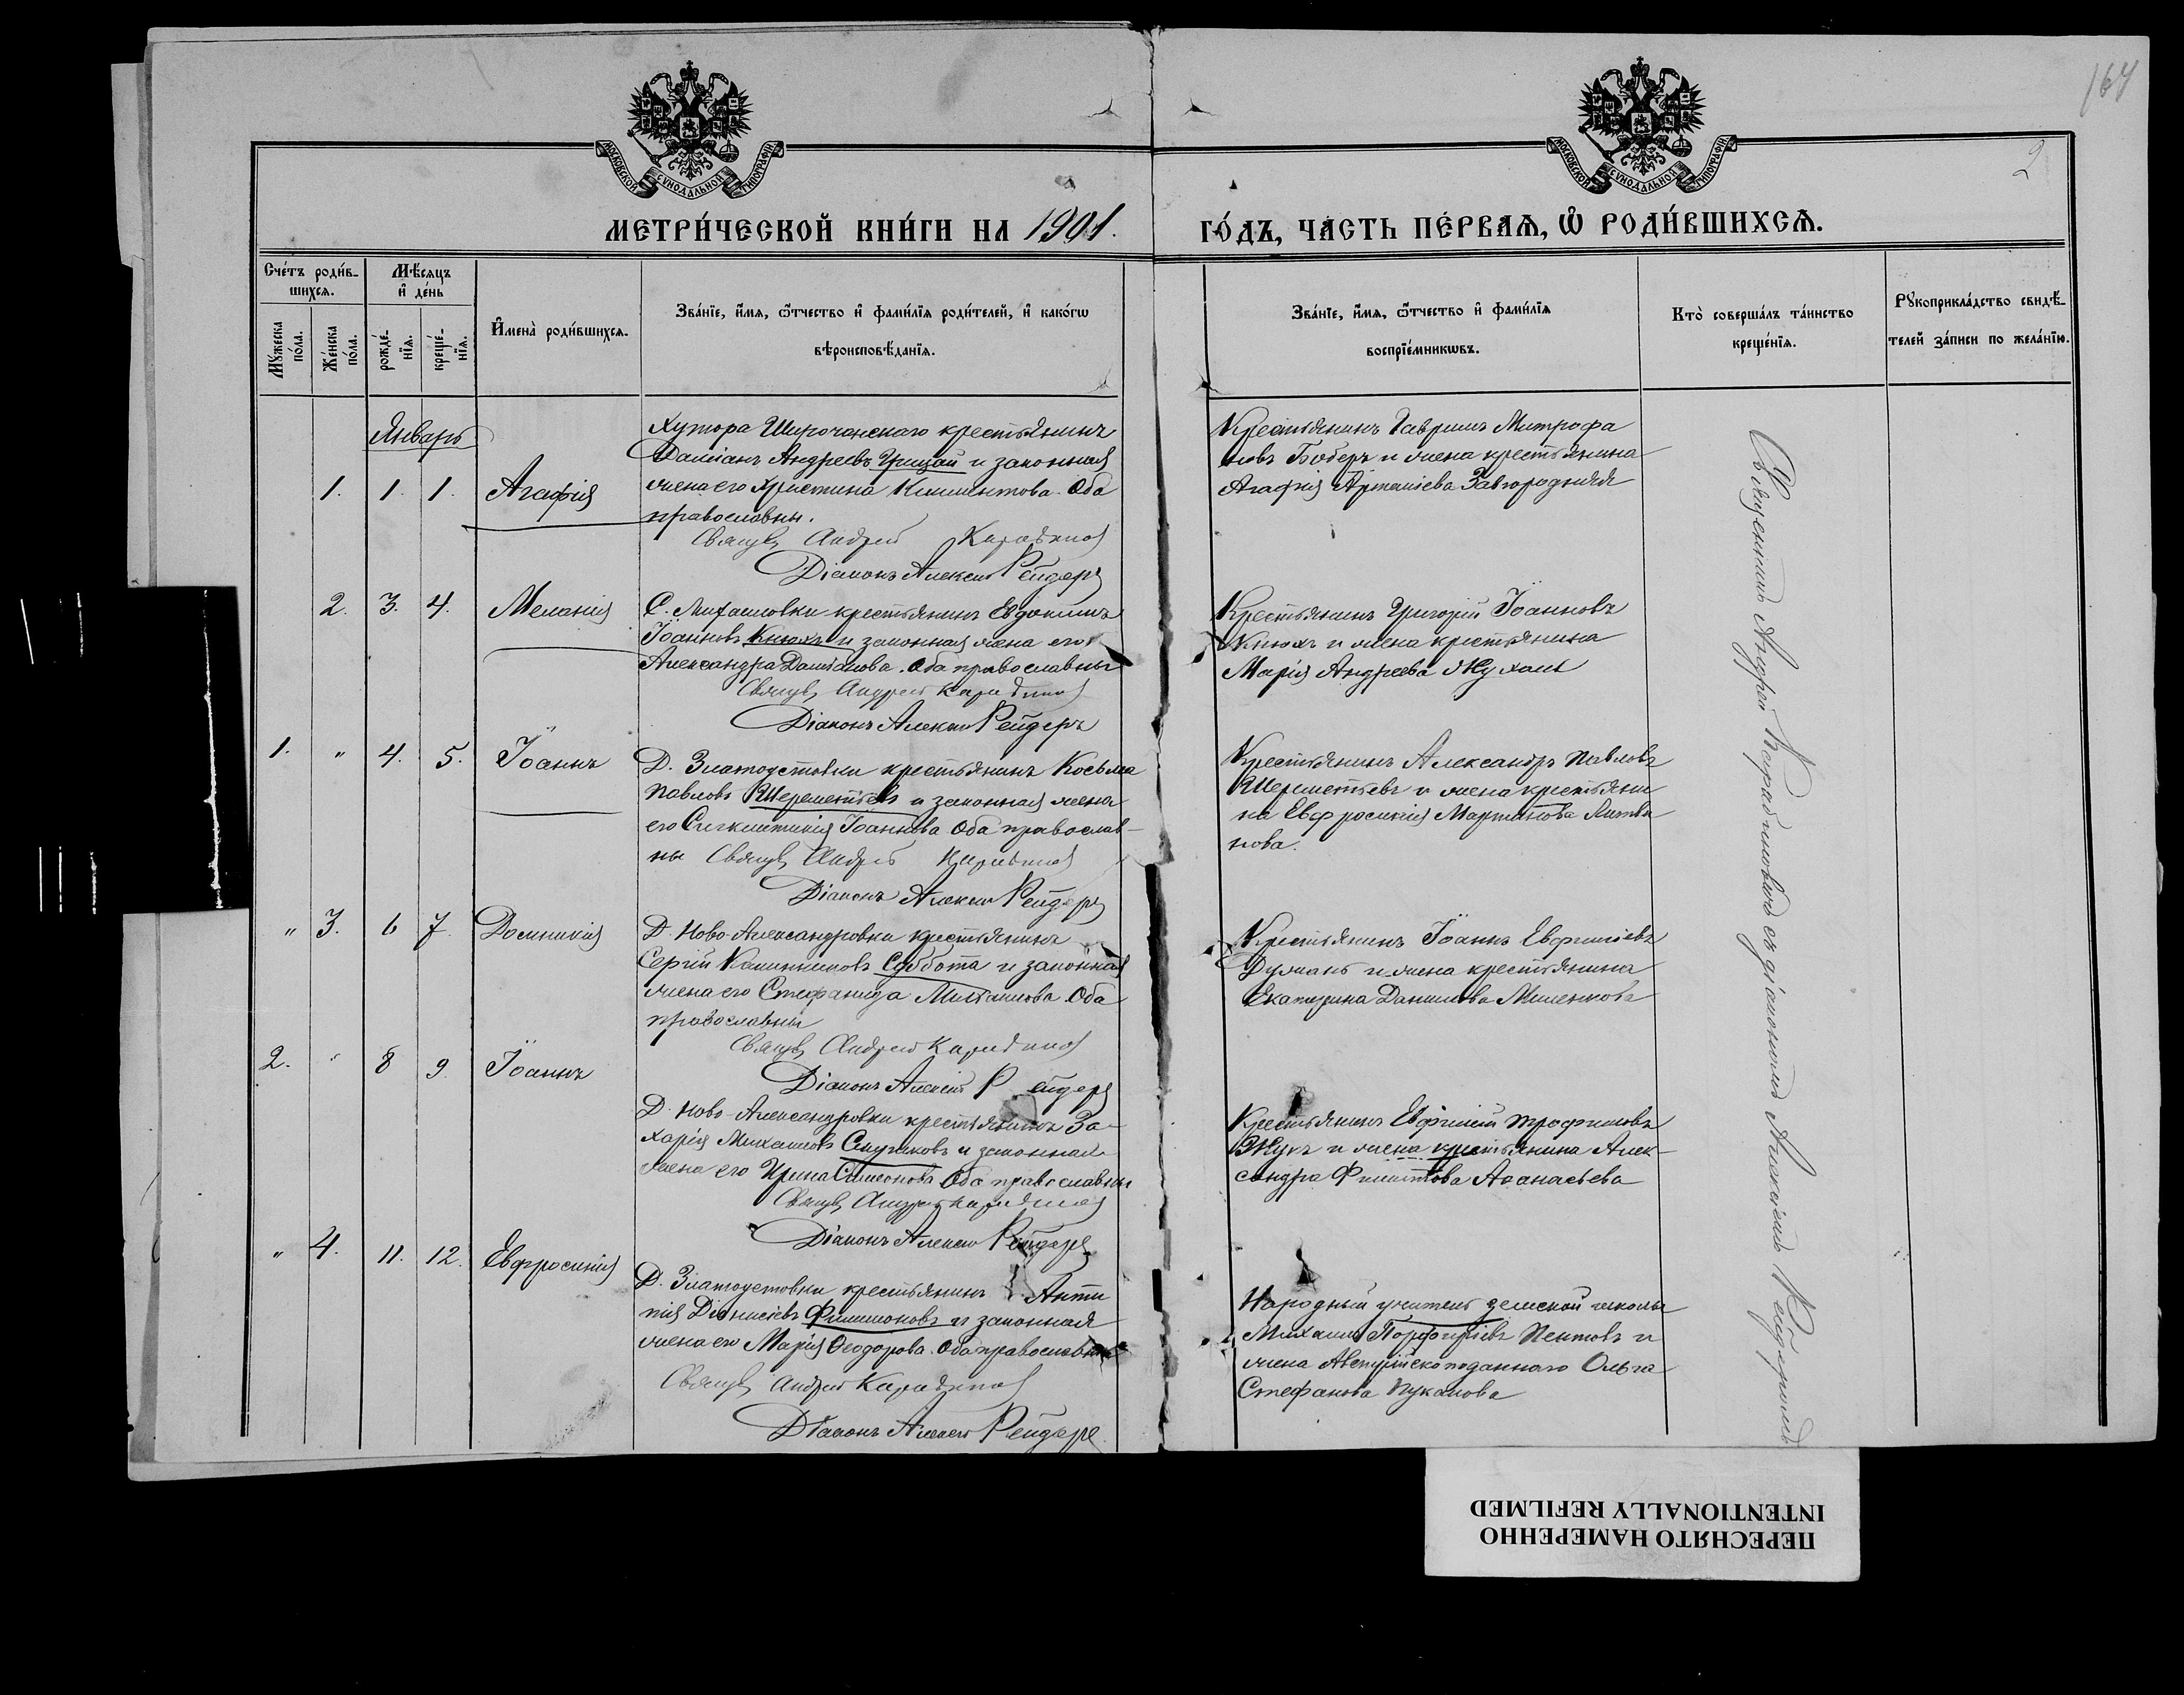 164
2
МОСКОВСКОЙ СѴНОДАЛЬНОЙ ТИПОГРАФІИ
МОСКОВСКОЙ СѴНОДАЛЬНОЙ ТИПОГРАФІИ
МЕТРИ́ЧЕСКОЙ КНИ́ГИ НА 1901. ГО́ДЪ, ЧА́СТЬ ПЕ́РВАѦ, Ѽ РОДИ́ВШИХСѦ.
Сче́тъ роди́вшихсѧ.
Мꙋ́жеска по́ла.
Же́нска по́ла.
Мѣ́сѧцъ и҆ де́нь
рожде́нїѧ.
креще́нїѧ.
И҆мена̀ роди́вшихсѧ.
Зва́нїе, и҆́мѧ, ѻ҆́тчество и҆ фами́лїѧ роди́телей, и҆ како́гѡ
вѣроисповѣ́данїѧ.
Зва́нїе, и҆́мѧ, ѻ҆́тчество и҆ фами́лїѧ
воспрїе́мникѡвъ.
Кто̀ соверша́лъ та́инство
креще́нїѧ.
Рꙋкоприкла́дство свидѣ́-
телей за́писи по жела́нїю.
Январь
1. 1. 1. Агафія
Хутора Широчанскаго крестьянинъ
Даміанъ Андреевъ Грицай и законная
жена его Христина Климентова. Оба
православны.
Свящ. Андрей
Діаконъ Алексій Рейдеръ
Крестьянинъ Гавріилъ Митрофа
новъ Боберъ и жена крестьянина
Агафія Артеміева Завгородняя
2. 3. 4. Меланія
С. Михайловки крестьянинъ Евдокимъ
Іоанновъ Кнюхъ и законная жена его
Александра Даміанова. Оба православны
Свящ. Андрей
Діаконъ Алексій Рейдеръ
Крестьянинъ Григорій Іоанновъ
Кнюхъ и жена крестьянина
Марія Андреева
1. " 4. 5. Іоаннъ
Д. Златоустовки крестьянинъ Косьма
Павловъ Шереметьевъ и законная жена
его Синклитикія Іоаннова Оба православ-
ны Свящ. Андрей
Діаконъ Алексій Рейдеръ
Крестьянинъ Александръ Павловъ
Шереметьевъ и жена крестьяни
на Евфросинія Мартинова Литви
нова.
" 3. 6 7. Домникія
Д. Ново-Александровки крестьянинъ
Сергій Каллиниковъ Суббота и законная
жена его Стефанида Михайлова Оба
православны
Свящ. Андрей
Діаконъ Алексій Рейдеръ
Крестьянинъ Іоаннъ Евфиміевъ
Думань и жена крестьянина
Екатерина Данилова
2. " 8 9. Іоаннъ
Д. Ново-Александровки крестьянинъ За-
харія Михайловъ и законная
жена его Ирина Симеонова Оба православны
Свящ. Андрей
Діаконъ Алексій Рейдеръ
Крестьянинъ Евфимій Трофимовъ
Жукъ и жена крестьянина Алек-
сандра Филиппова Аѳанасьева
" 4. 11. 12. Евфросинія
Д. Златоустовки крестьянинъ Анти
пій Діонисіевъ Филимоновъ и законная
жена его Марія Ѳеодорова. Оба православны
Свящ. Андрей
Діаконъ Алексій Рейдеръ
Народный учитель земской школы
Михаилъ Порфиріевъ Пентовъ и
жена Австрійскоподаннаго Ольга
Стефанова Пуканова
Священникъ Андрей съ діакономъ Алексіемъ Рейдеромъ
ПЕРЕСНЯТО НАМЕРЕННО
INTENTIONALLY REFILMED